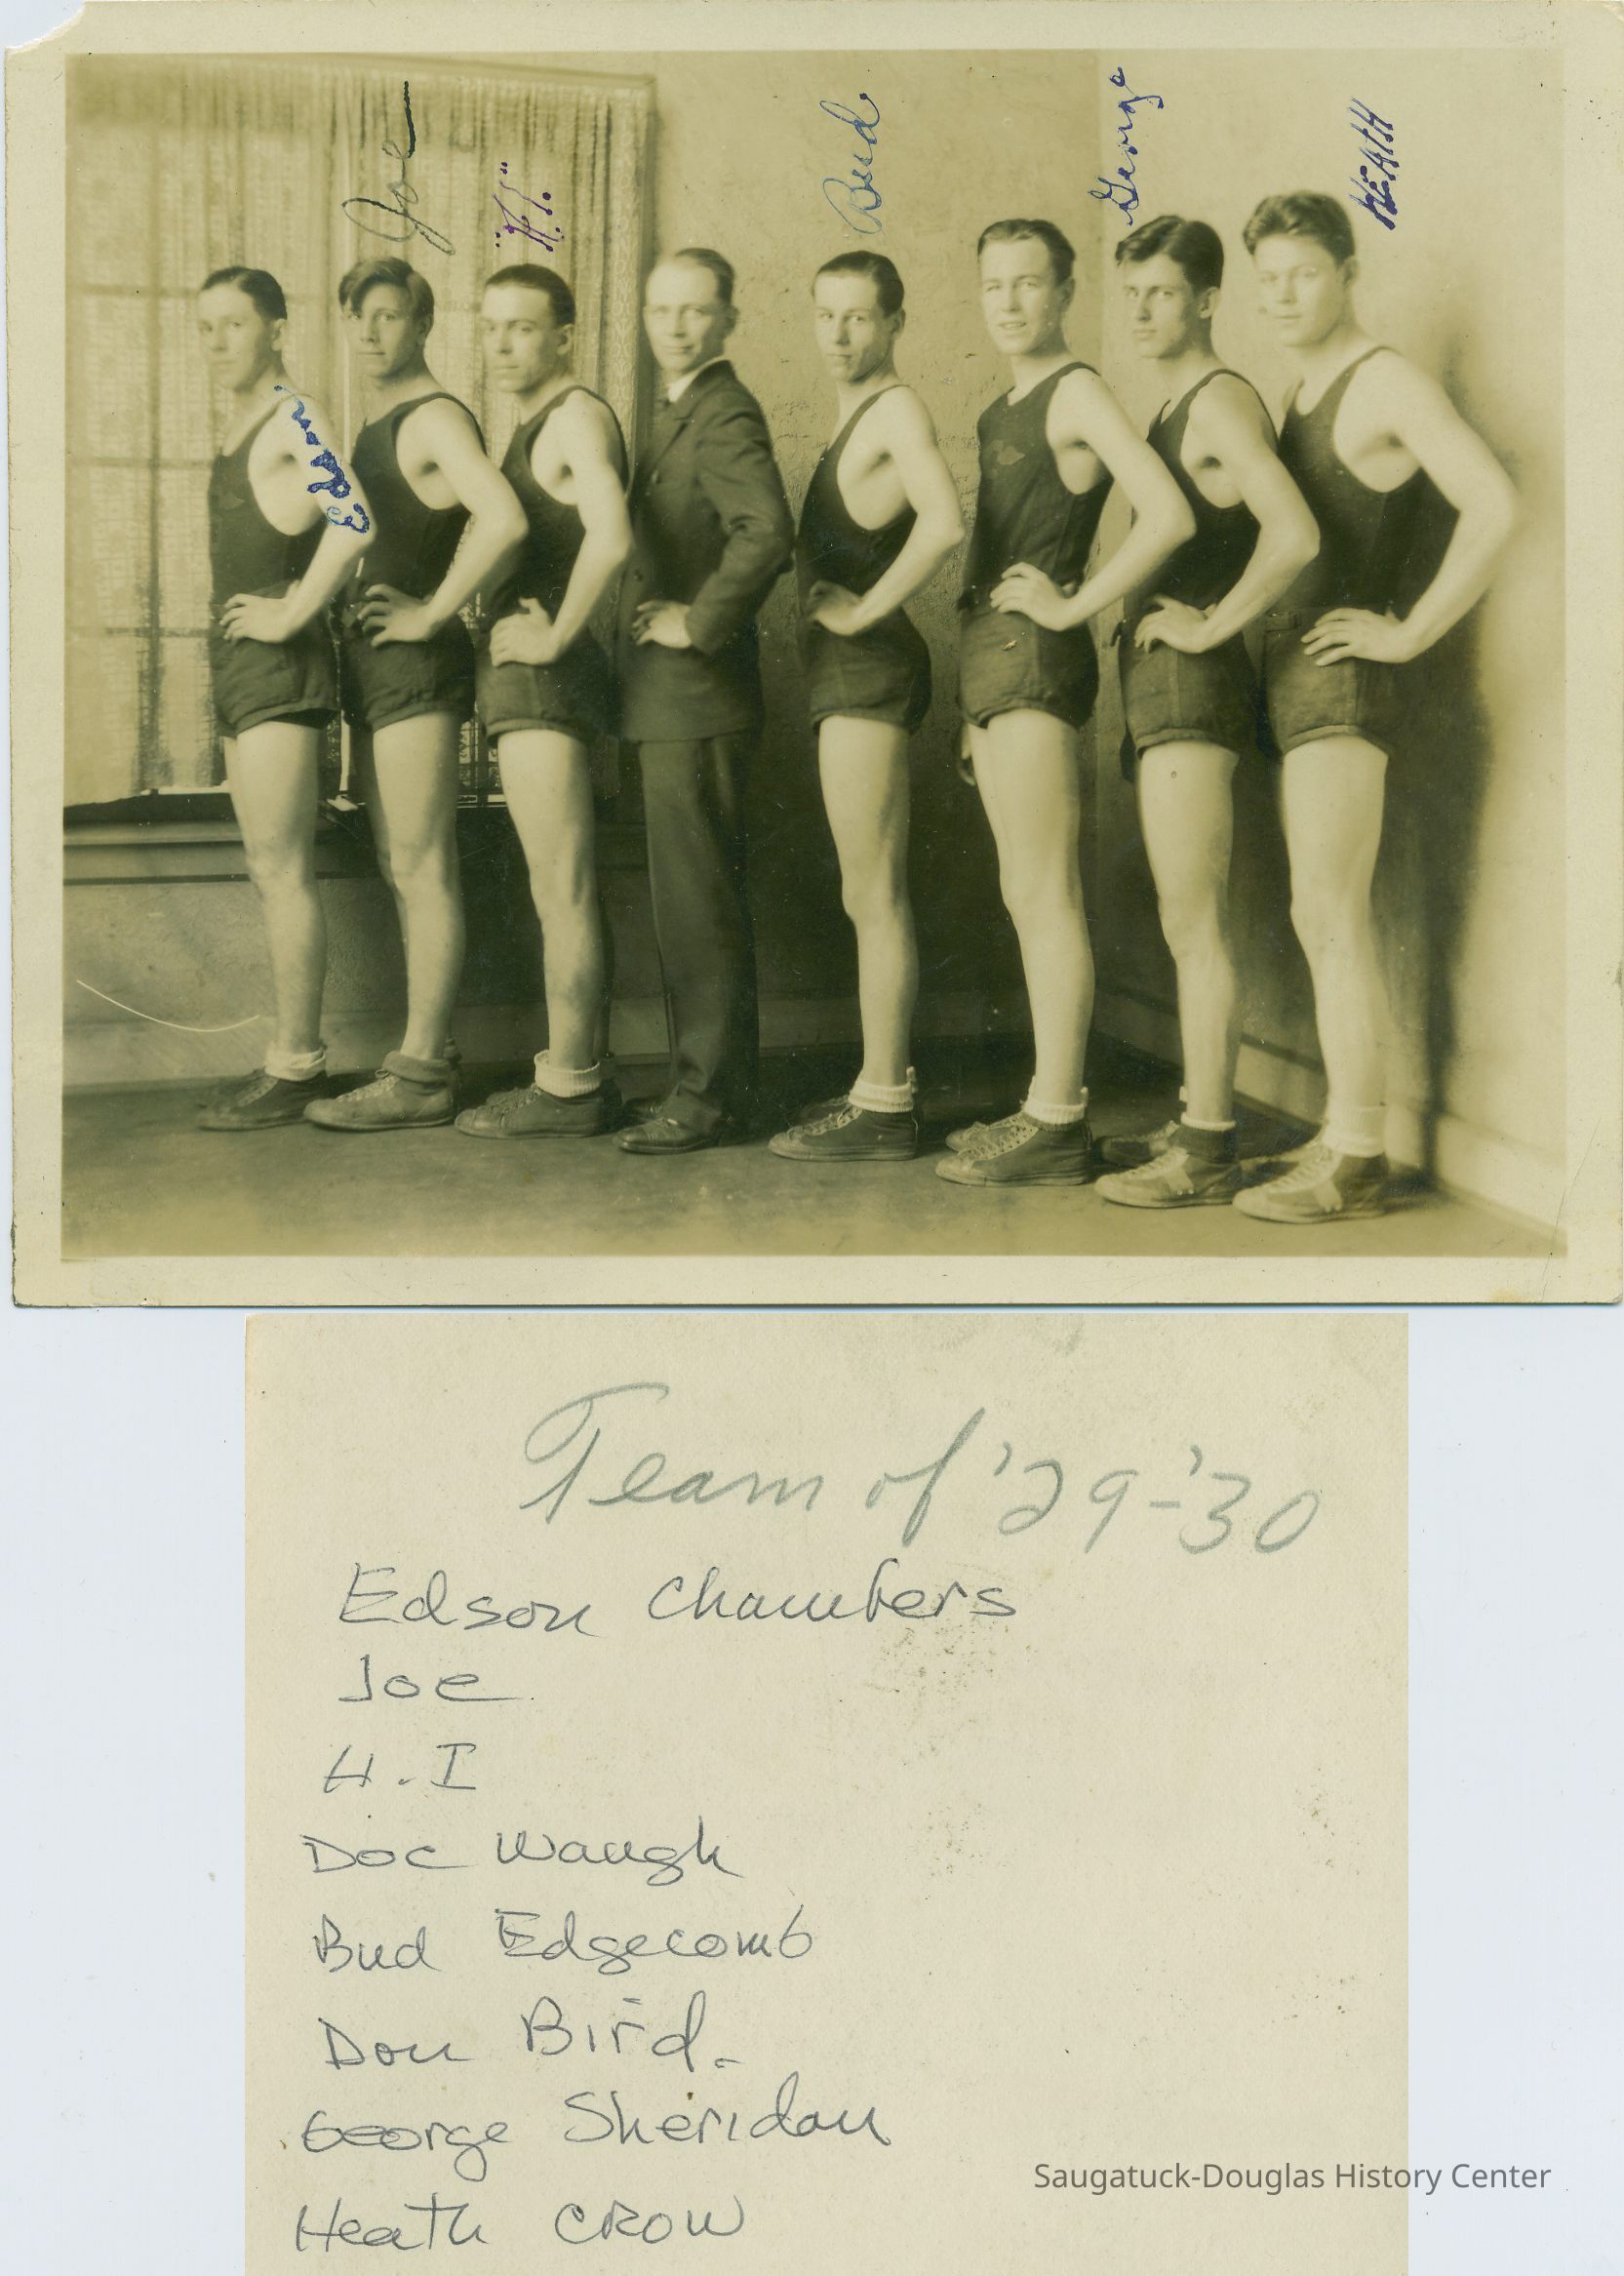 Joe
"H.I."
Bud.
George
HEATH
Edson
Team of '29-'30
Edson Chambers
Joe
H.I
Doc Waugh
Bud Edgecomb
Don Bird.
George Sheridan
Heath CROW
Saugatuck-Douglas History Center